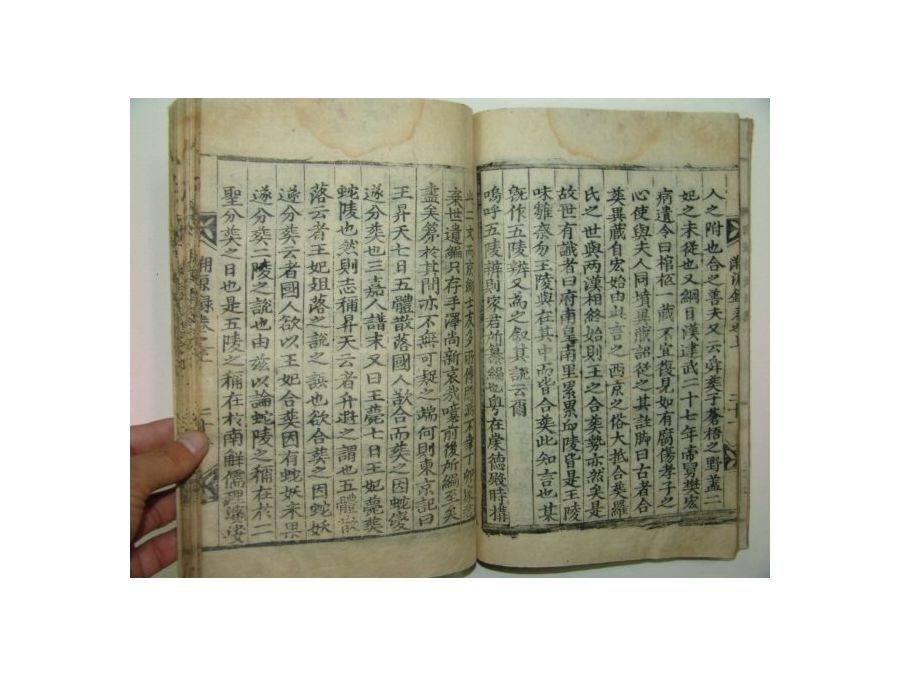 人之附也合之善夫又云舜葬于蒼梧之野蓋二
妃之未從也又綱目漢建武二十七年帝舅樊宏
病遺令曰棺柩一藏不宜復見如有腐傷孝子之
心使與夫人同墳異藏詔從之其註脚曰古者合
葬異藏自宏始由此言之西京之俗大抵合葬羅
氏之世與兩漢相終始則王之合葬勢亦然矣是
故世有識者曰府南皇南里累累邱陵皆是王陵
味雖奈勿王陵與在其中而皆合葬此知言也某
旣作五陵辨又爲之叙其說云爾
嗚呼五陵辨則家君所纂緝也粤在崇德殿時搆
此二文而京鄕士友多所傳閱
棄世遺編只存手澤尚新哀我嗟前後所編至矣
盡矣第於其間亦不無可疑之端何則東京記曰
王昇天七日五體散落國人欲合而葬之因蛇
遂分葬也三嘉人譜末又曰王薨七日王妃薨葬
蛇陵也然則志稱昇天云者升遐之謂也五體散
落云者王妃殂落之說之誤也欲合葬之因蛇妖
遂分葬云者國人欲以王妃合葬因有蛇妖未果
遂分葬二陵之說也由玆以論蛇陵之稱在於二
聖分葬之日也是五陵之稱在於南解儒理
溯源錄卷之上
二十一
溯源錄卷之上